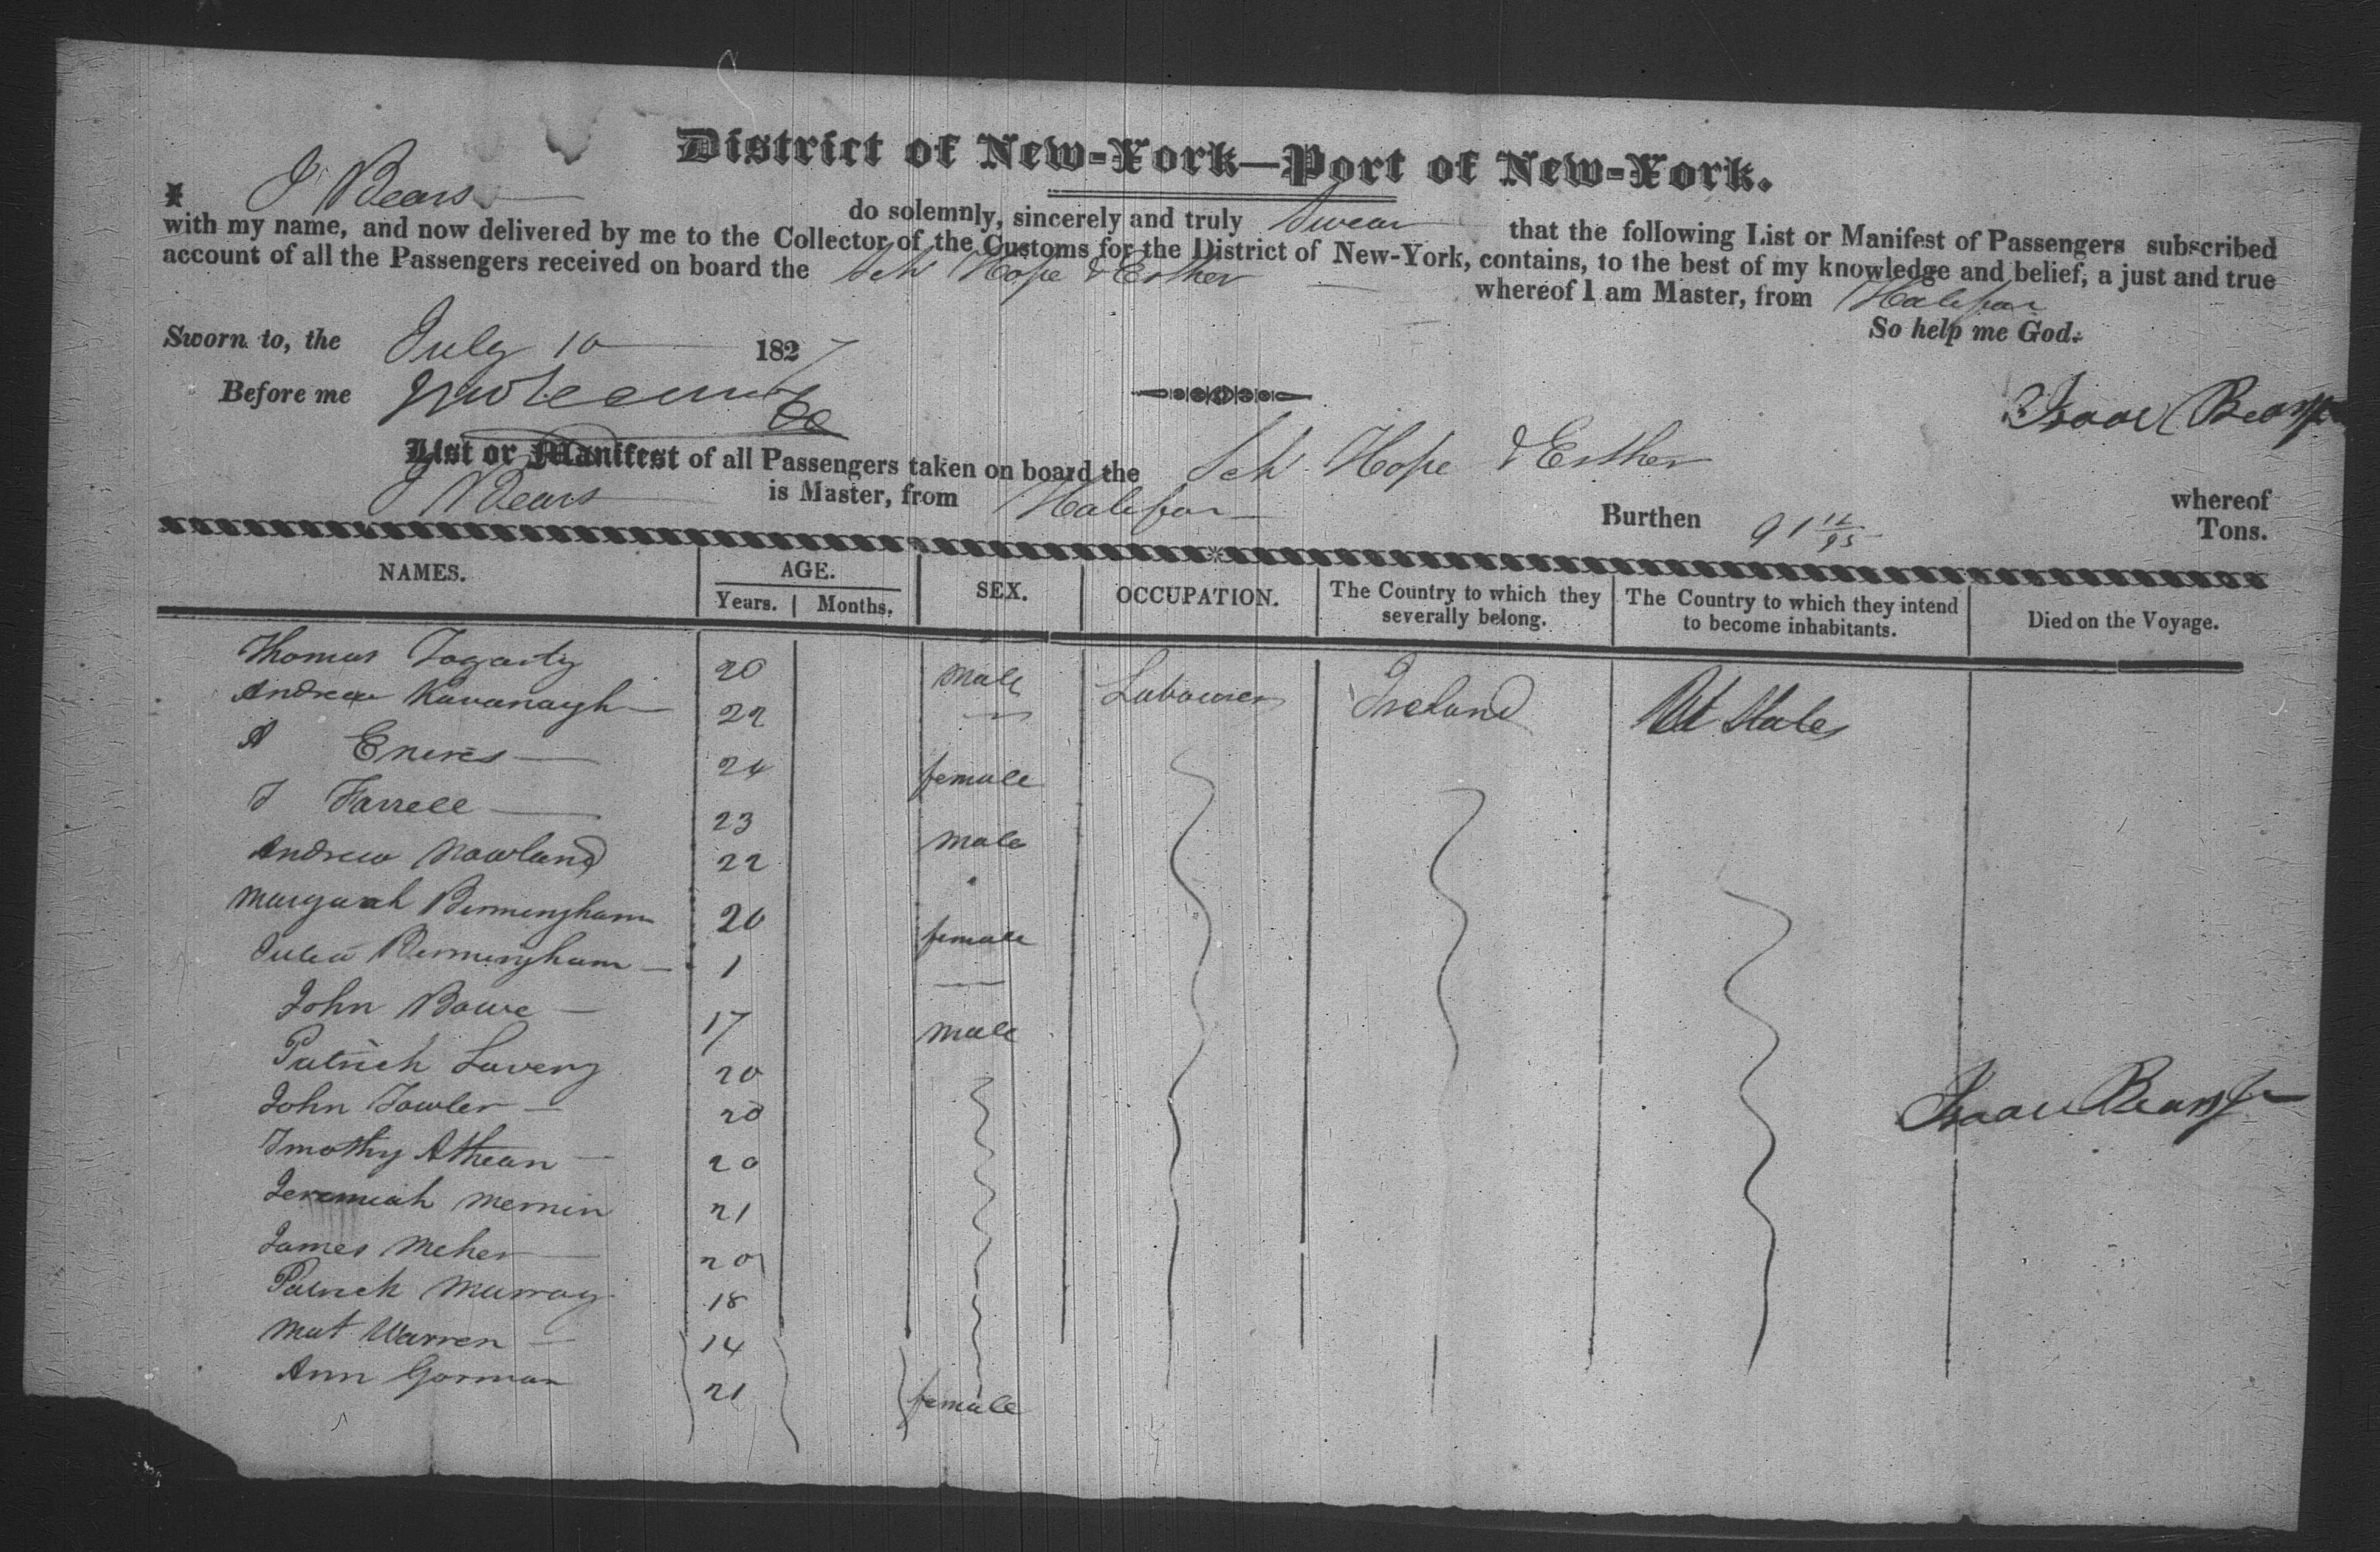 District of New-York—Port of New-York.
I J Bears do solemnly, sincerely and truly Swear that the following List or Manifest of Passengers subscribed
with my name, and now delivered by me to the Collector of the Customs for the District of New-York, contains, to the best of my knowledge and belief, a just and true
account of all the Passengers received on board the Sch Hope & Esther whereof I am Master, from Halifax
So help me God.
Sworn to, the July 10 1827
Before me
Isaac Bears Jr
List or Manifest of all Passengers taken on board the Sch Hope & Esther whereof
J Bears is Master, from Halifax Burthen 91 12/95 Tons.
NAMES. AGE. Years. Months. SEX. OCCUPATION. The Country to which they severally belong. The Country to which they intend to become inhabitants. Died on the Voyage.
Thomas Fogarty 20 Male Labourer Ireland Ut States
Andrew Kavanagh 22
A 24 female
J Farrell 23 male
Andrew Nowland 22
Margarah Birmingham 20 female
Julia Birmingham 1
John Bowe 17 male
Patrick Lavery 20
John Fowler 20
Timothy Athean 20
Jeremiah Mernin 21
James Meher 20
Patrick Murray 18
Mat Warren 14
Ann Gorman 21 female
Isaac Bears Jr